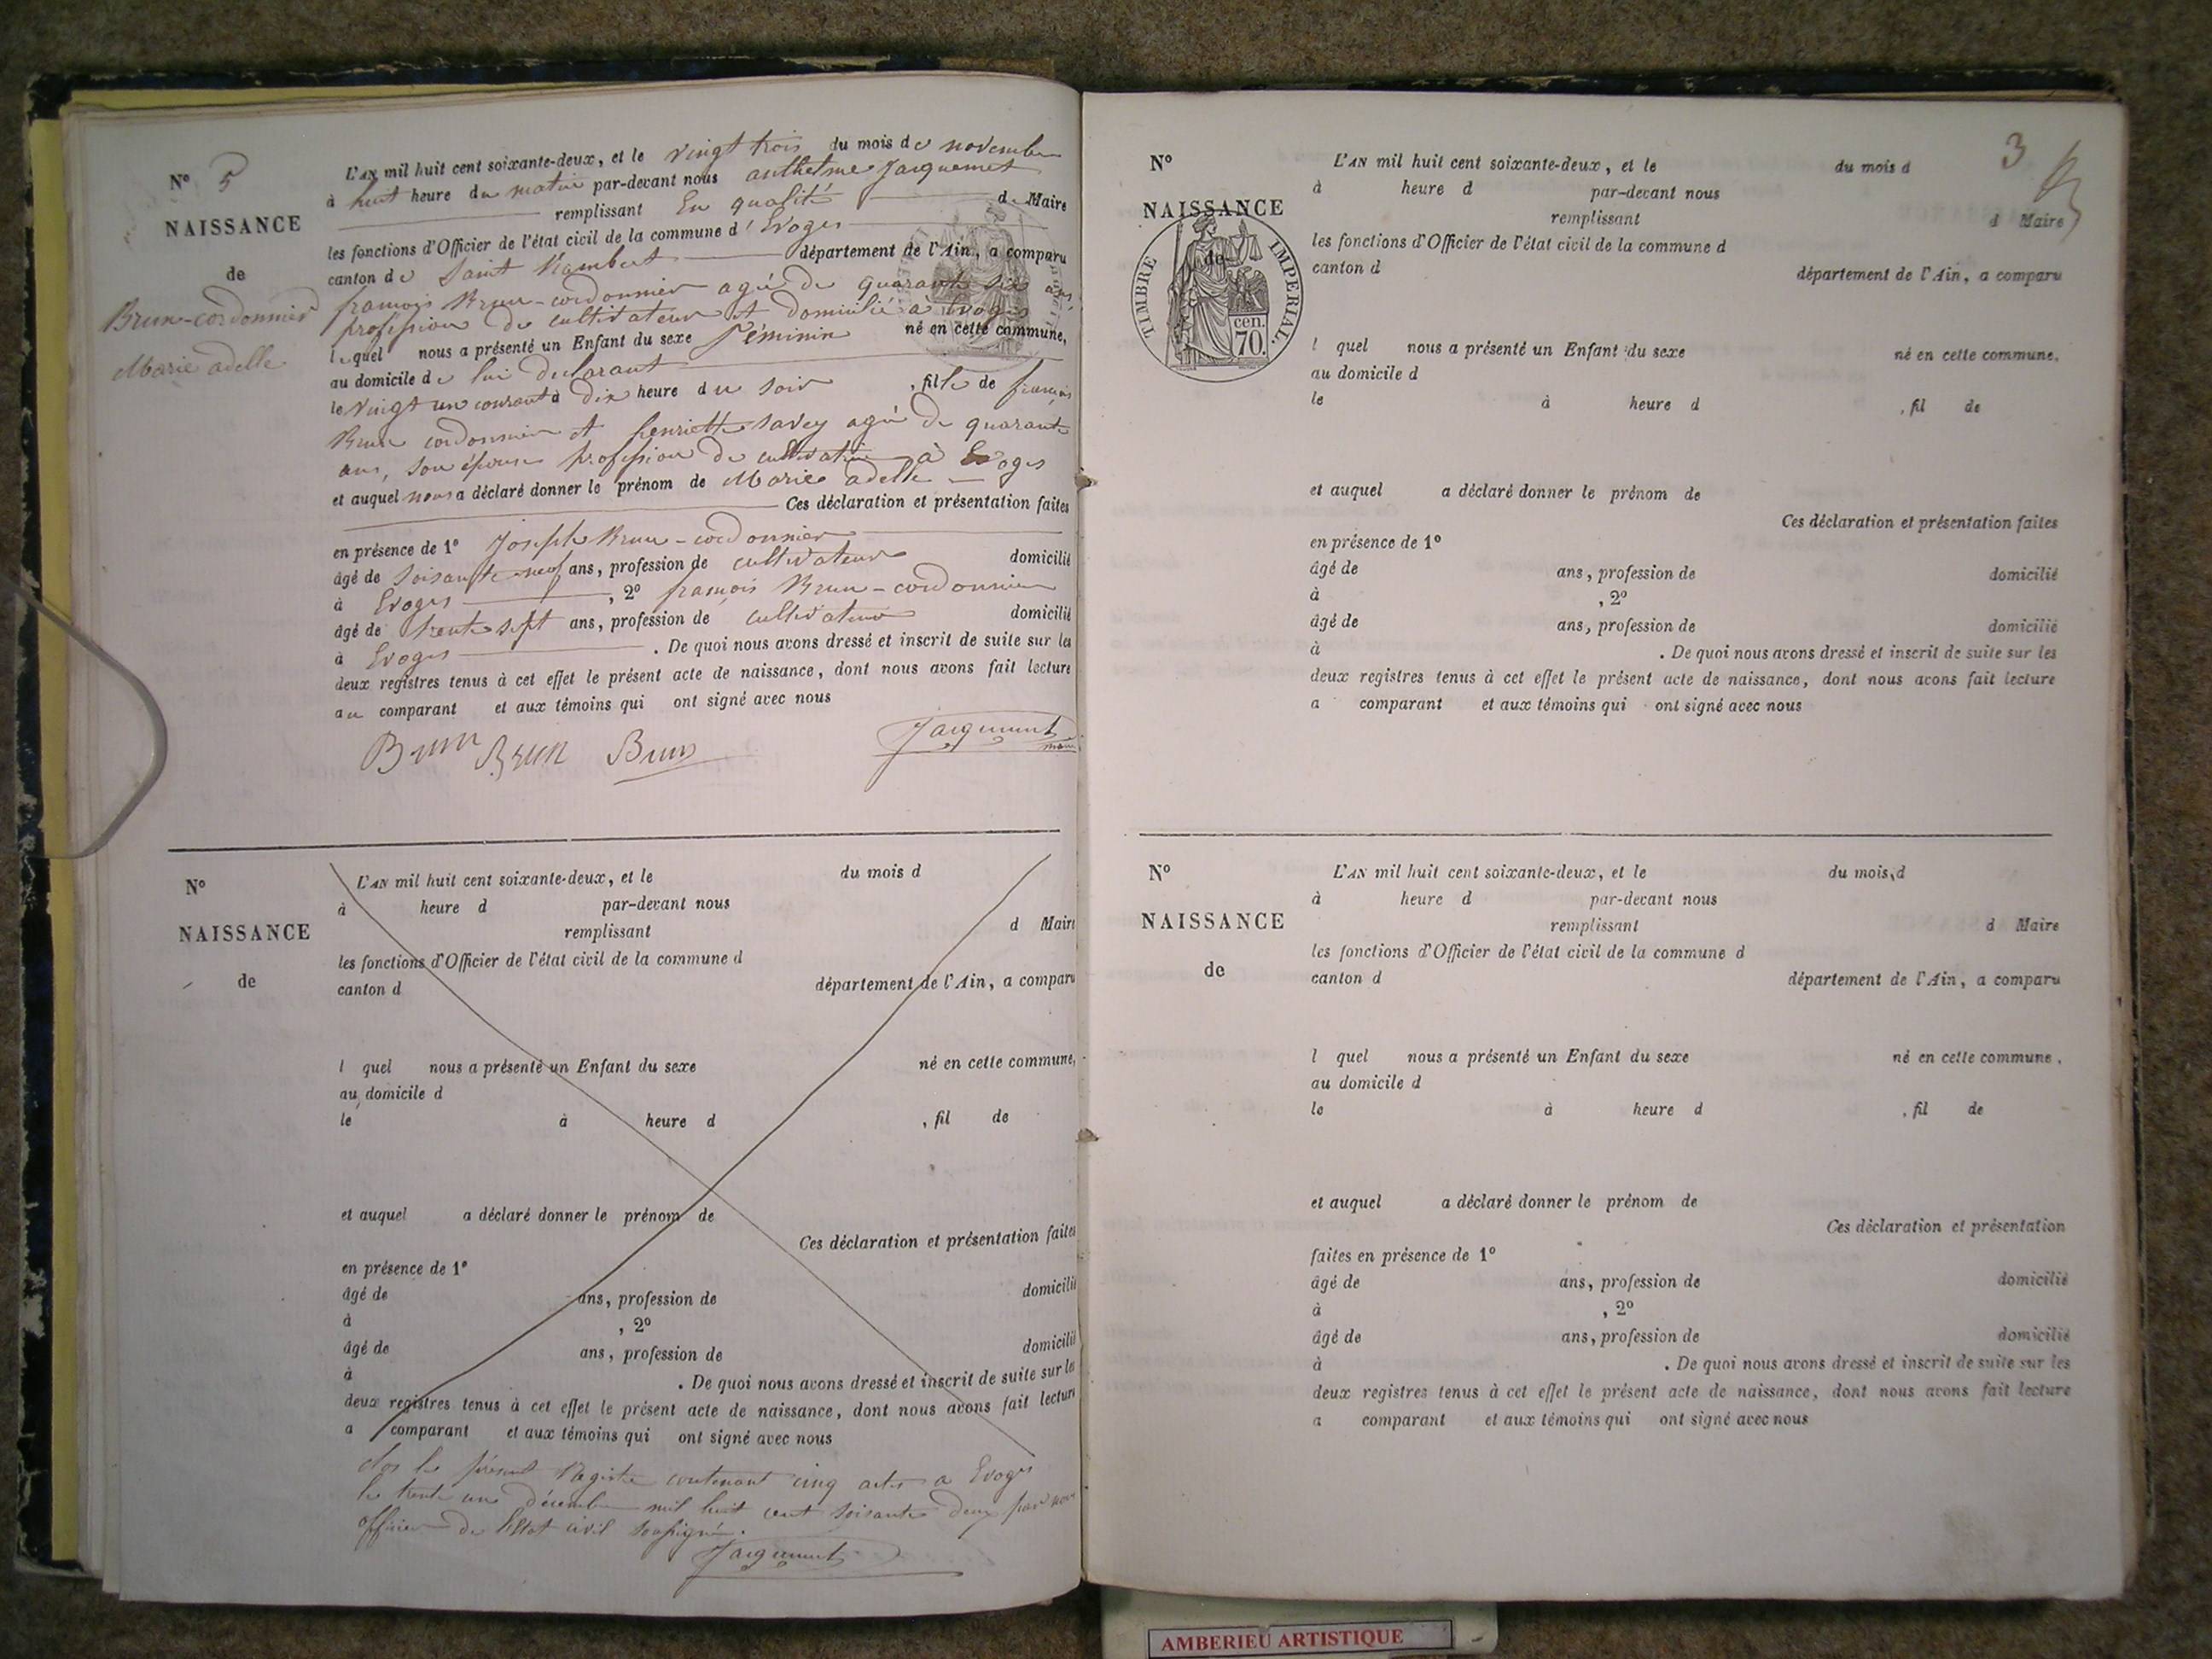 N° 5
NAISSANCE
de
Brun-cordonnier
Marie adelle
L'AN mil huit cent soixante-deux, et le vingt trois du mois de novembre
à huit heure du matin par-devant nous anthelme Jacquemet
remplissant En qualité de Maire
les fonctions d'Officier de l'état civil de la commune d'Evoges
canton de Saint Rambert département de l'Ain, a comparu
françois Brun-cordonnier agé de quarante six ans,
profession de cultivateur et domicilié à Evoges
lequel nous a présenté un Enfant du sexe Féminin né en cette commune,
au domicile de lui declarant
le vingt un courant à dix heure du soir, fille de françois
Brun cordonnier et henriette savey agé de quarante
ans, son épouse profession de cultivatrice à Evoges
et auquel nous a déclaré donner le prénom de Marie adelle
Ces déclaration et présentation faites
en présence de 1° Joseph Brun-cordonnier
âgé de soisante neuf ans, profession de cultivateur domicilié
à Evoges, 2° françois Brun-cordonnier
âgé de trente sept ans, profession de cultivateur domicilié
à Evoges. De quoi nous avons dressé et inscrit de suite sur les
deux registres tenus à cet effet le présent acte de naissance, dont nous avons fait lecture
au comparant et aux témoins qui ont signé avec nous
Brun Brun Brun Jacquemet
maire
N°
NAISSANCE
de
L'AN mil huit cent soixante-deux, et le du mois d
à heure d par-devant nous
remplissant d Maire
les fonctions d'Officier de l'état civil de la commune d
canton d département de l'Ain, a comparu
l quel nous a présenté un Enfant du sexe né en cette commune,
au domicile d
le à heure d , fil de
et auquel a déclaré donner le prénom de
Ces déclaration et présentation faites
en présence de 1°
âgé de ans, profession de domicilié
à , 2°
âgé de ans, profession de domicilié
à . De quoi nous avons dressé et inscrit de suite sur les
deux registres tenus à cet effet le présent acte de naissance, dont nous avons fait lecture
a comparant et aux témoins qui ont signé avec nous
Clos le présent Registre contenant cinq actes a Evoges
le trente un Décembre mil huit cent soisante deux par nous
officier de l'Etat civil soussigné.
Jacquemet
3
N°
NAISSANCE
de
TIMBRE IMPERIAL.
cen.
70.
L'AN mil huit cent soixante-deux, et le du mois d
à heure d par-devant nous
remplissant d Maire
les fonctions d'Officier de l'état civil de la commune d
canton d département de l'Ain, a comparu
l quel nous a présenté un Enfant du sexe né en cette commune,
au domicile d
le à heure d , fil de
et auquel a déclaré donner le prénom de
Ces déclaration et présentation faites
en présence de 1°
âgé de ans, profession de domicilié
à , 2°
âgé de ans, profession de domicilié
à . De quoi nous avons dressé et inscrit de suite sur les
deux registres tenus à cet effet le présent acte de naissance, dont nous avons fait lecture
a comparant et aux témoins qui ont signé avec nous
N°
NAISSANCE
de
L'AN mil huit cent soixante-deux, et le du mois d
à heure d par-devant nous
remplissant d Maire
les fonctions d'Officier de l'état civil de la commune d
canton d département de l'Ain, a comparu
l quel nous a présenté un Enfant du sexe né en cette commune.
au domicile d
le à heure d , fil de
et auquel a déclaré donner le prénom de
Ces déclaration et présentation
faites en présence de 1°
âgé de ans, profession de domicilié
à , 2°
âgé de ans, profession de domicilié
à . De quoi nous avons dressé et inscrit de suite sur les
deux registres tenus à cet effet le présent acte de naissance, dont nous avons fait lecture
a comparant et aux témoins qui ont signé avec nous
AMBERIEU ARTISTIQUE